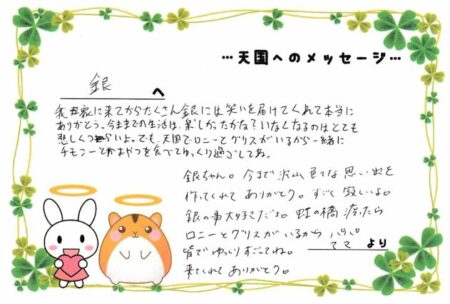 …天国へのメッセージ…
銀 へ
我が家に来てからたくさん銀には笑いを届けてくれて本当に
ありがとう。今までの生活は、楽しかったかな？いなくなるのはとても
悲しくつらいよ。でも、天国でロニーとグリスがいるから一緒に
チモシーとかおやつを食べてゆっくり過ごしてね。
銀ちゃん。今まで沢山色々な思い出を
作ってくれてありがとう。すごく寂しいよ。
銀の事大好きだよ。虹の橋渡ったら
ロニーとグリスがいるから
皆でゆっくりすごしてね。
来てくれてありがとう。
ママ より